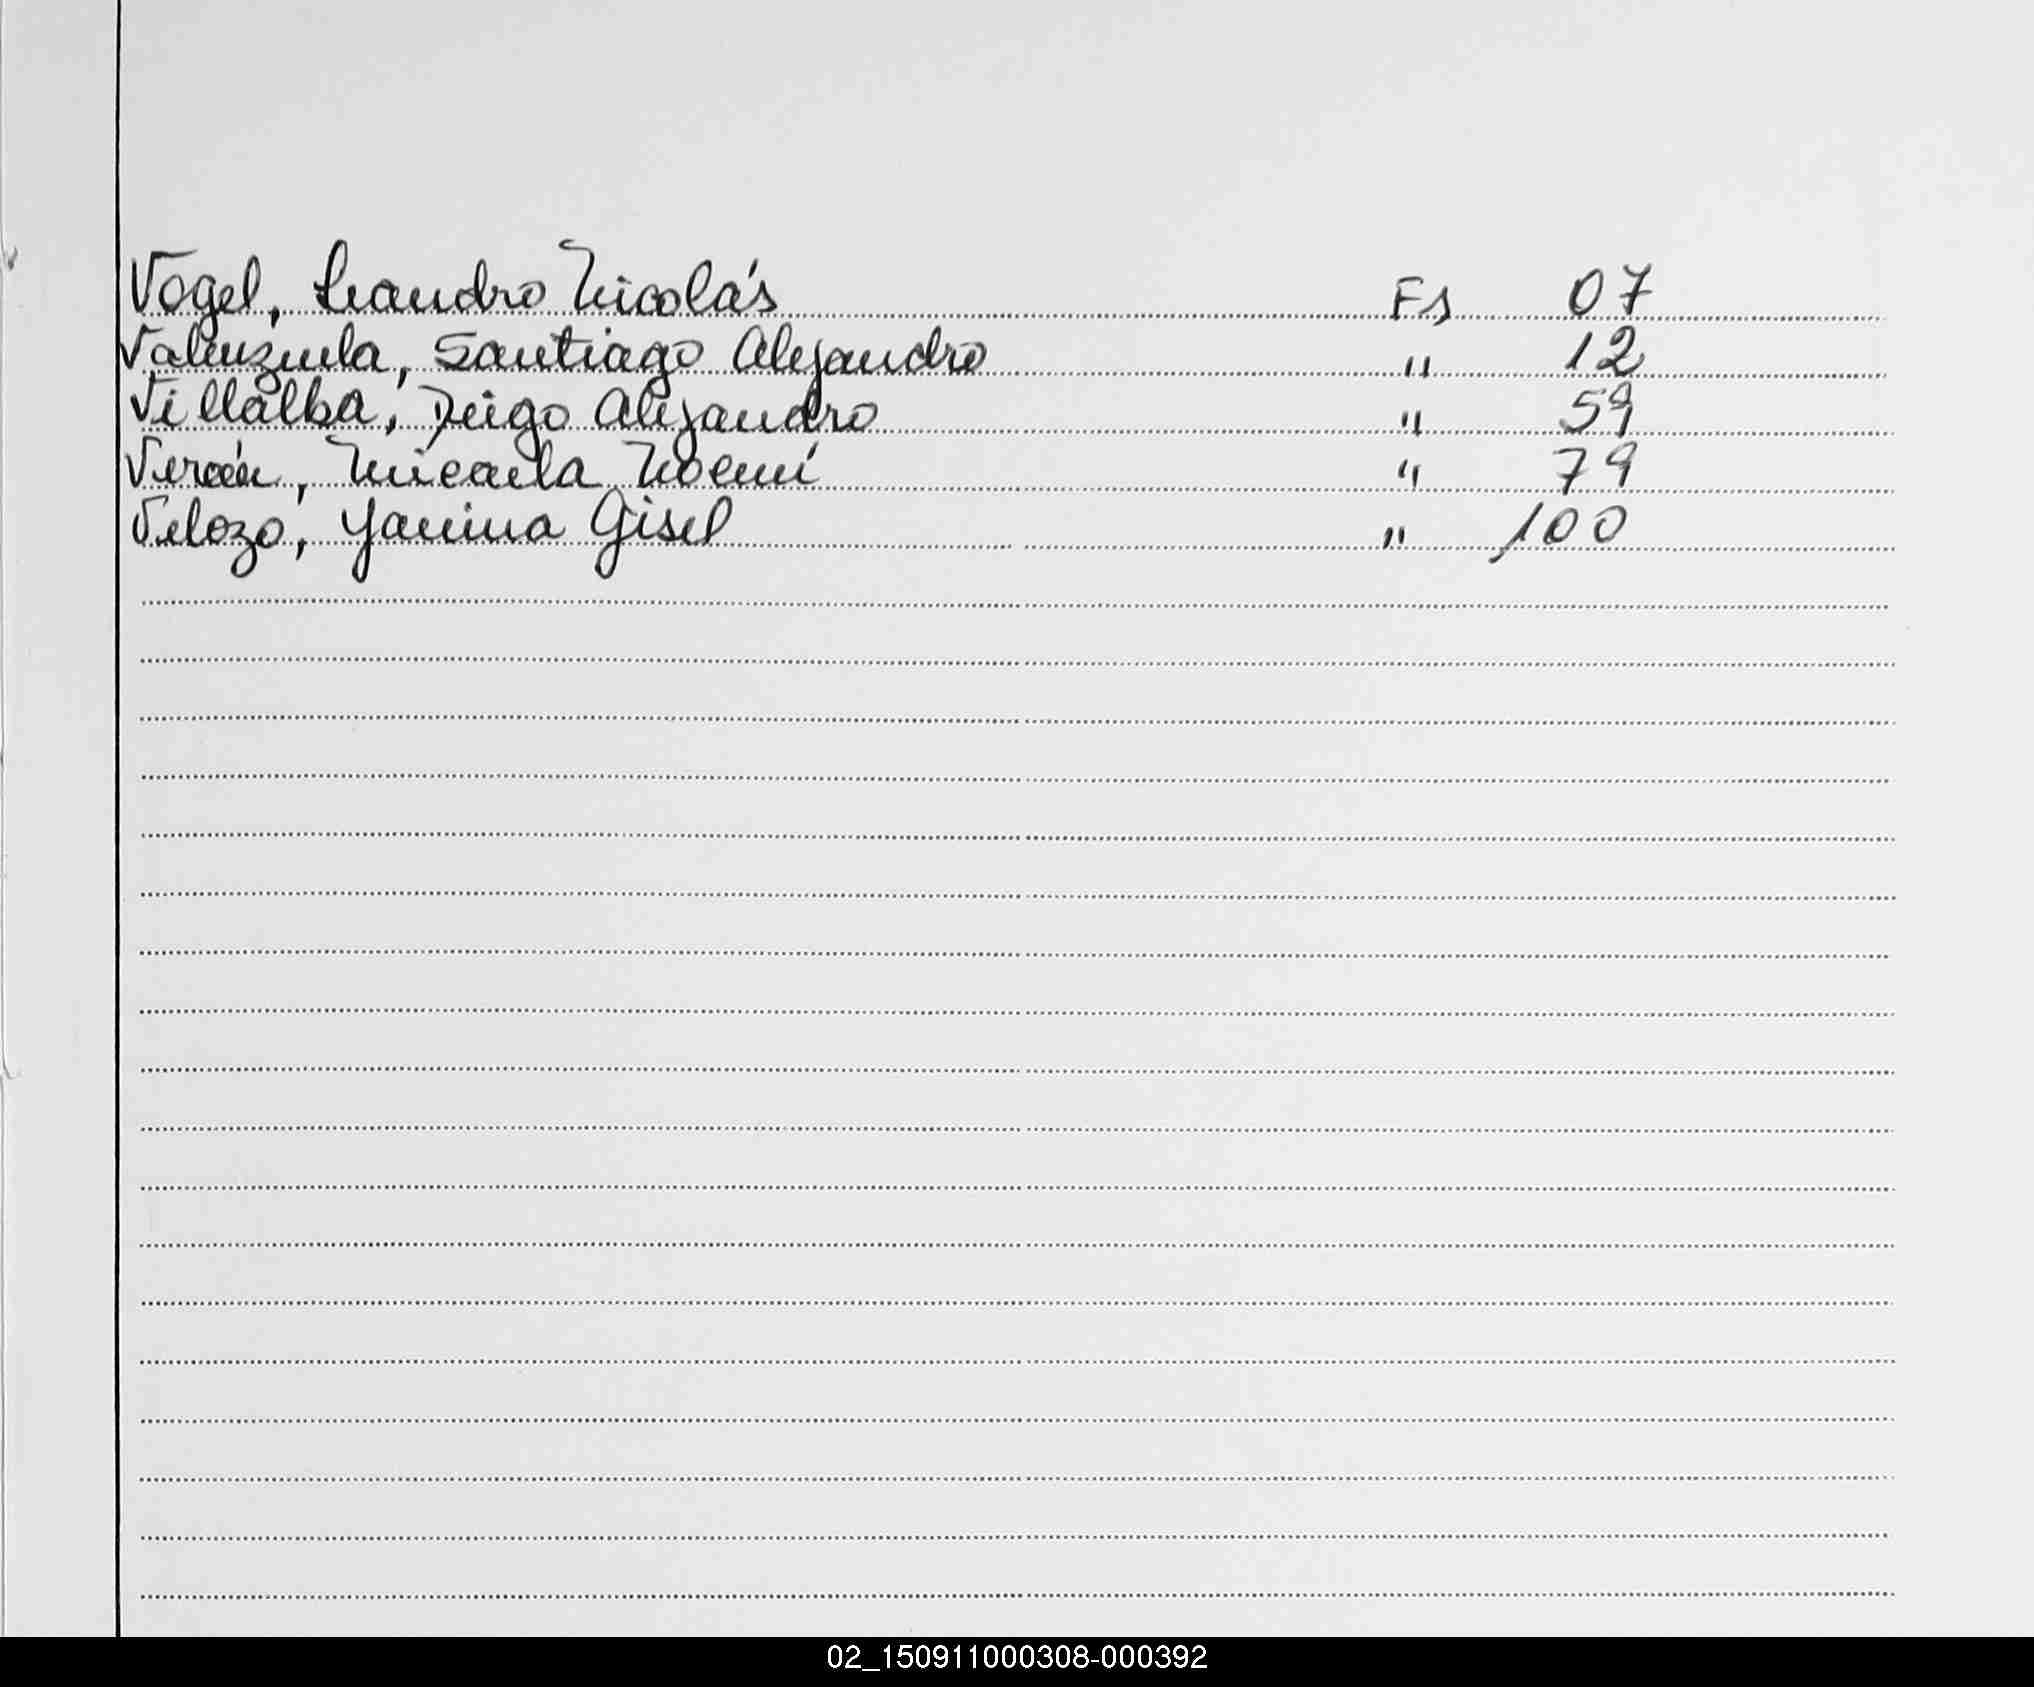 Vogel, Leandro Nicolás Fs 07
Valenzuela, Santiago Alejandro " 12
Villalba, Diego Alejandro " 59
Verón, Micaela Noemí " 79
Velozo, Yanina Gisel " 100
02_150911000308-000392